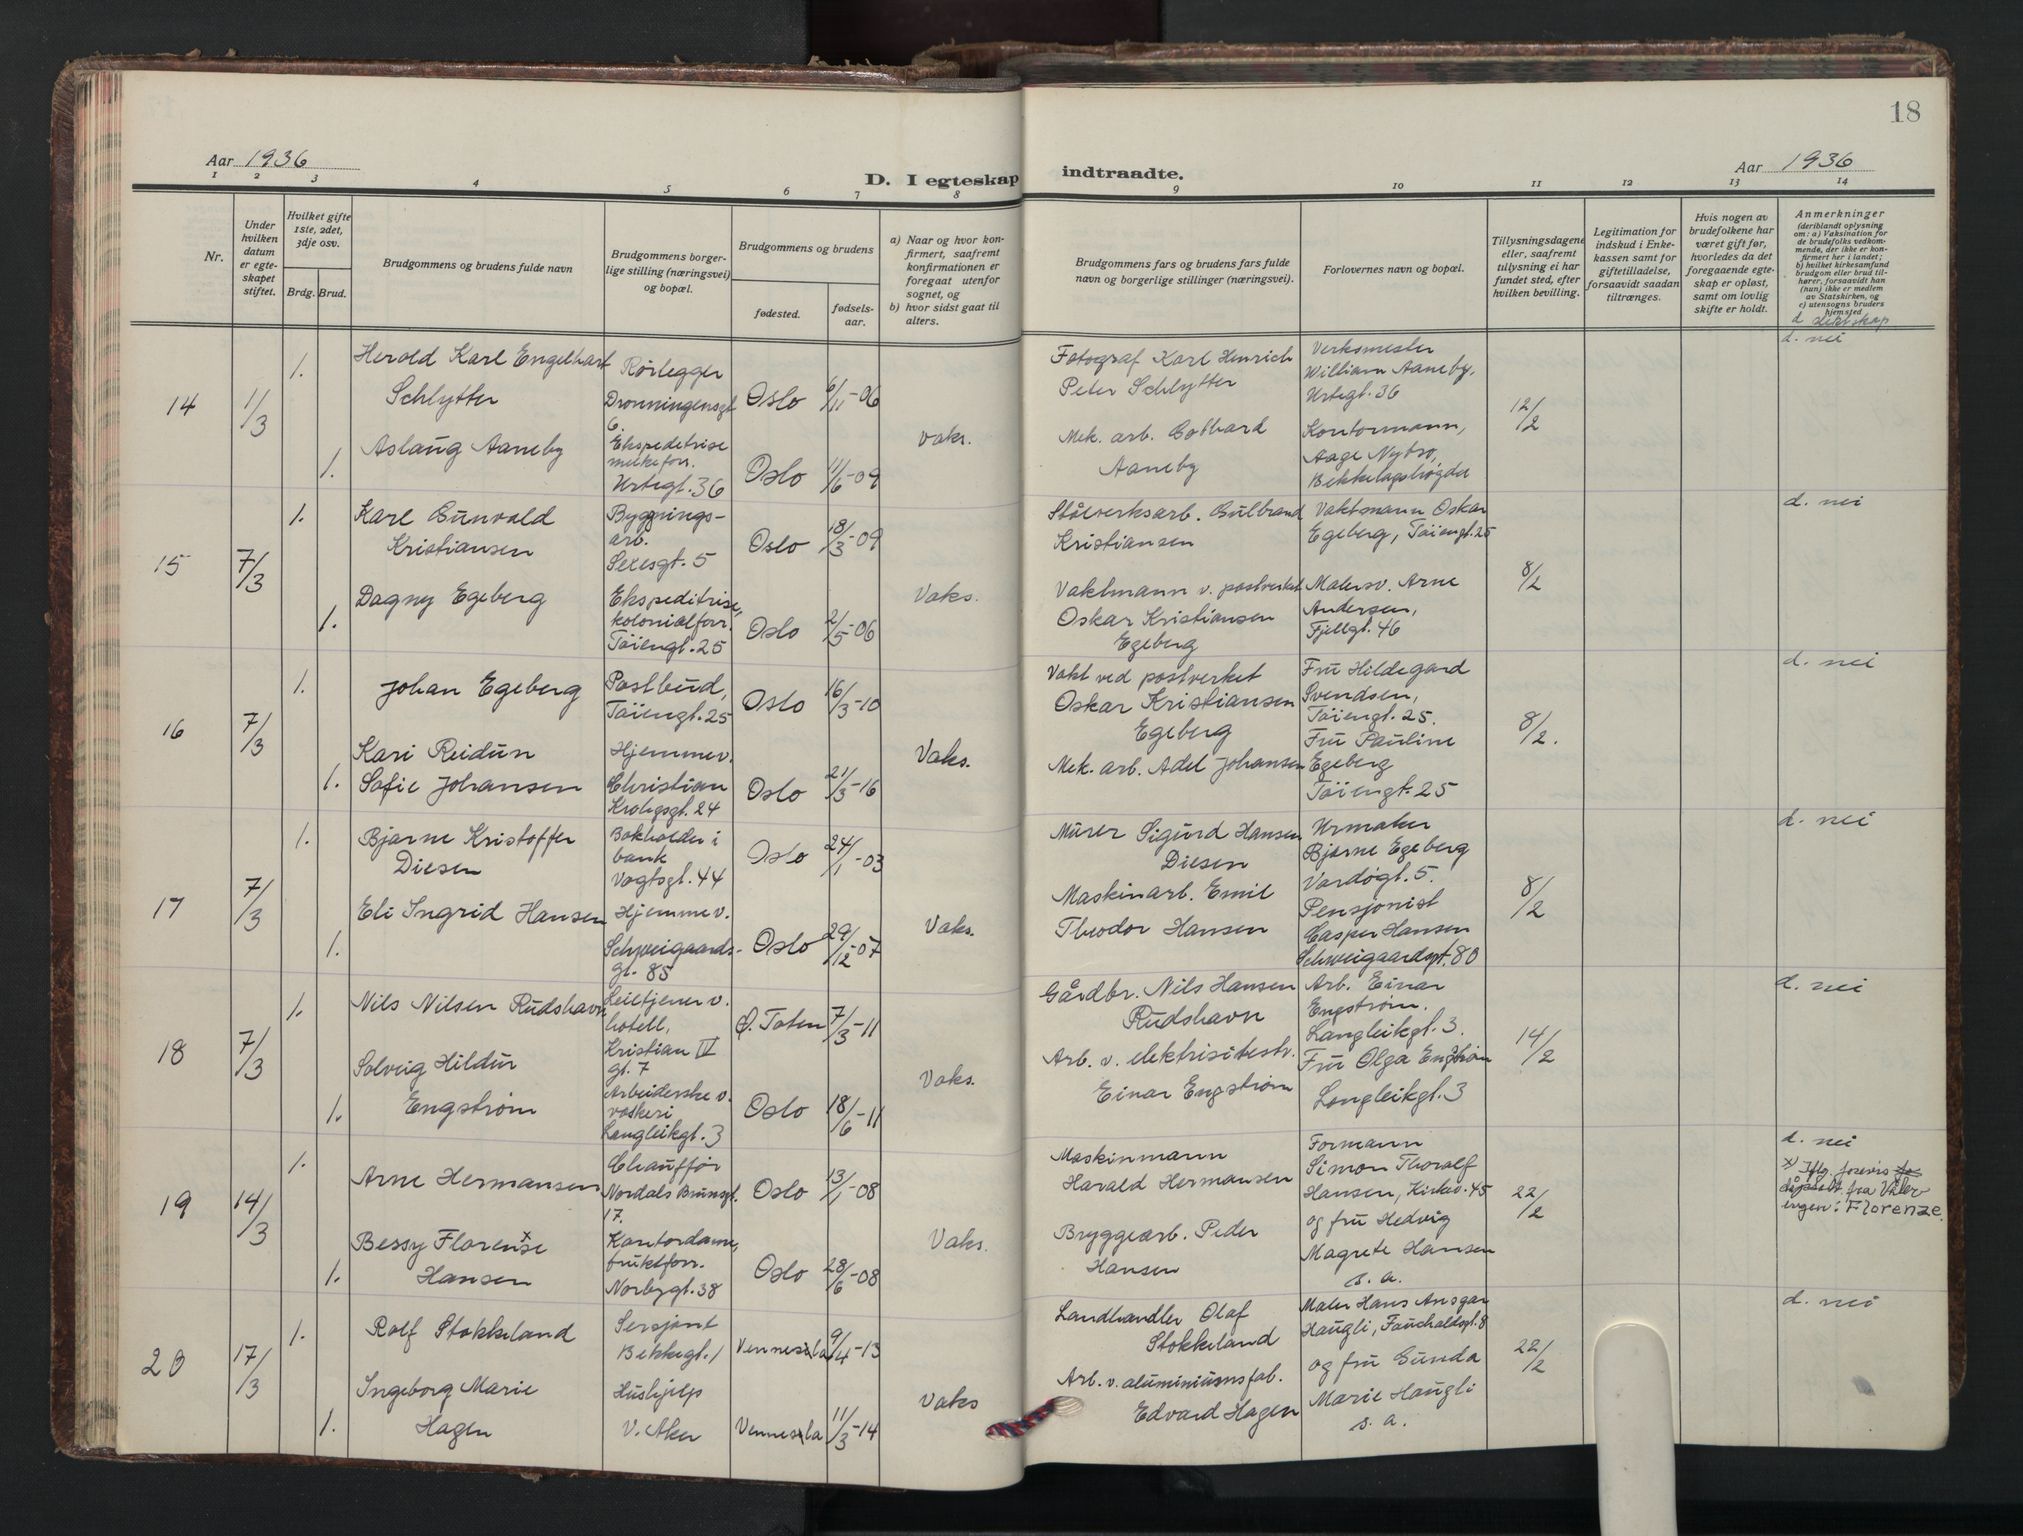 18
Aar 1936
D. I egteskap indtraadte.
Aar 1936
1 2 3 4 5 6 7 8 9 10 11 12 13 14
Nr.
Under hvilken datum er egte-skapet stiftet.
Hvilket gifte 1ste, 2det, 3dje osv.
Brdg. Brud.
Brudgommens og brudens fulde navn
Brudgommens borger-
lige stilling (næringsvei)
og bopæl.
Brudgommens og brudens
fødested.
fødsels-
aar.
a) Naar og hvor kon-
firmert, saafremt
konfirmationen er
foregaat utenfor
sognet, og
b) hvor sidst gaat til
alters.
Brudgommens fars og brudens fars fulde
navn og borgerlige stillinger (næringsvei).
Forlovernes navn og bopæl.
Tillysningsdagene
eller, saafremt
tillysning ei har
fundet sted, efter
hvilken bevilling.
Legitimation for
indskud i Enke-
kassen samt for
giftetilladelse,
forsaavidt saadan
tiltrænges.
Hvis nogen av
brudefolkene har
været gift før,
hvorledes da det
foregaaende egte-
skap er opløst,
samt om lovlig
skifte er holdt.
Anmerkninger
(deriblandt oplysning
om: a) Vaksination for
de brudefolks vedkom-
mende, der ikke er kon-
firmert her i landet;
b) hvilket kirkesamfund
brudgom eller brud til-
hører, forsaavidt han
(hun) ikke er medlem
av Statskirken, og
c) utensogns bruders
hjemsted
d slektskap
14
1/3
1.
Herold Karl Engelhart
Schlytter
Rørlegger
Dronningensgt
6.
Oslo
6/11-06
Fotograf Karl Henrich
Peter Schlytter
Verksmester
William Aaneby,
Urtegt. 36
12/2
d. nei
1.
Aslaug Aaneby
Ekspeditrise
melkeforr.
Urtegt. 36
Oslo
11/6-09
vaks.
Mek. arb. Gothard
Aaneby
Kontormann,
Aage Nybro,
Bekkelagshøgda
15
7/3
1.
Karl Gunvald
Kristiansen
Bygnings-
arb.
Sexesgt. 5
Oslo
18/3-09
Stålverksarb. Gulbrand
Kristiansen
Vaktmann Oskar
Egeberg, Töiengt. 25
8/2
d. nei
1.
Dagny Egeberg
Ekspeditrise,
kolonialforr.
Töiengt. 25
Oslo
2/5-06
Vaks.
Vaktmann v. postverket
Oskar Kristiansen
Egeberg
Malersv. Arne
Andersen,
Fjellgt. 46
16
7/3
1.
Johan Egeberg
Postbud,
Töiengt. 25
Oslo
16/3-10
Vakt ved postverket
Oskar Kristiansen
Egeberg
Fru Hildegard
Svendsen,
Töiengt. 25.
8/2.
d. nei
1.
Kari Reidun
Sofie Johansen
Hjemmev.
Christian
Krohgsgt. 24
Oslo
21/3-16
Vaks.
Mek. arb. Adel Johansen
Fru Pauline
Egeberg
Töiengt. 25
17
7/3
1.
Bjarne Kristoffer
Diesen
Bokholder i
bank
Vogtsgt. 44
Oslo
24/1-03
Murer Sigurd Hansen
Diesen
Urmaker
Bjarne Egeberg
Vardøgt. 5.
8/2
d. nei
1.
Eli Ingrid Hansen
Hjemmev.
Schweigaards-
gt. 85
Oslo
29/12-07
Vaks.
Maskinarb. Emil
Theodor Hansen
Pensjonist
Casper Hansen
Schweigaardsgt. 80
18
7/3
1.
Nils Nilsen Rudshavn
Leietjener v.
hotell,
Kristian IV
gt. 7
Ø. Toten
7/3-11
Gårdbr. Nils Hansen
Rudshavn
Arb. Einar
Engstrøm.
Langleikgt. 3.
14/2
d. nei
1.
Solveig Hildur
Engstrøm
Arbeiderske v.
vaskeri
Langleikgt. 3
Oslo
18/6-11
Vaks.
Arb. v. elektrisitetsv.
Einar Engstrøm
Fru Olga Engstrøm
Langleikgt. 3
19
14/3
1.
Arne Hermansen
Chauffør
Nordals Brunsgt.
17.
Oslo
13/1-08
Maskinmann
Harald Hermansen
Formann
Simon Thoralf
Hansen, Kirkev. 45
22/2
d. nei
x) Iflg. forevis
fra Våler
engen: Florenze.
1.
Bessy Florense x
Hansen
Kontordame,
fruktforr.
Norbygt. 38
Oslo
28/6-08
Vaks.
Bryggearb. Peder
Hansen
og fru Hedvig
Magrete Hansen
s. a.
20
17/3
1.
Rolf Stokkeland
Sersjant
Bekkegt. 1
Vennesla
9/4-13
Landhandler Olaf
Stokkeland
Maler Hans Ansgar
Haugli, Fauchaldsgt. 8
22/2
d. nei
1.
Ingeborg Marie
Hagen
Hushjelp
V. Aker
Vennesla
11/3-14
Vaks
Arb. v. aluminiumsfab.
Edvard Hagen
og fru Gunda
Marie Haugli
s. a.